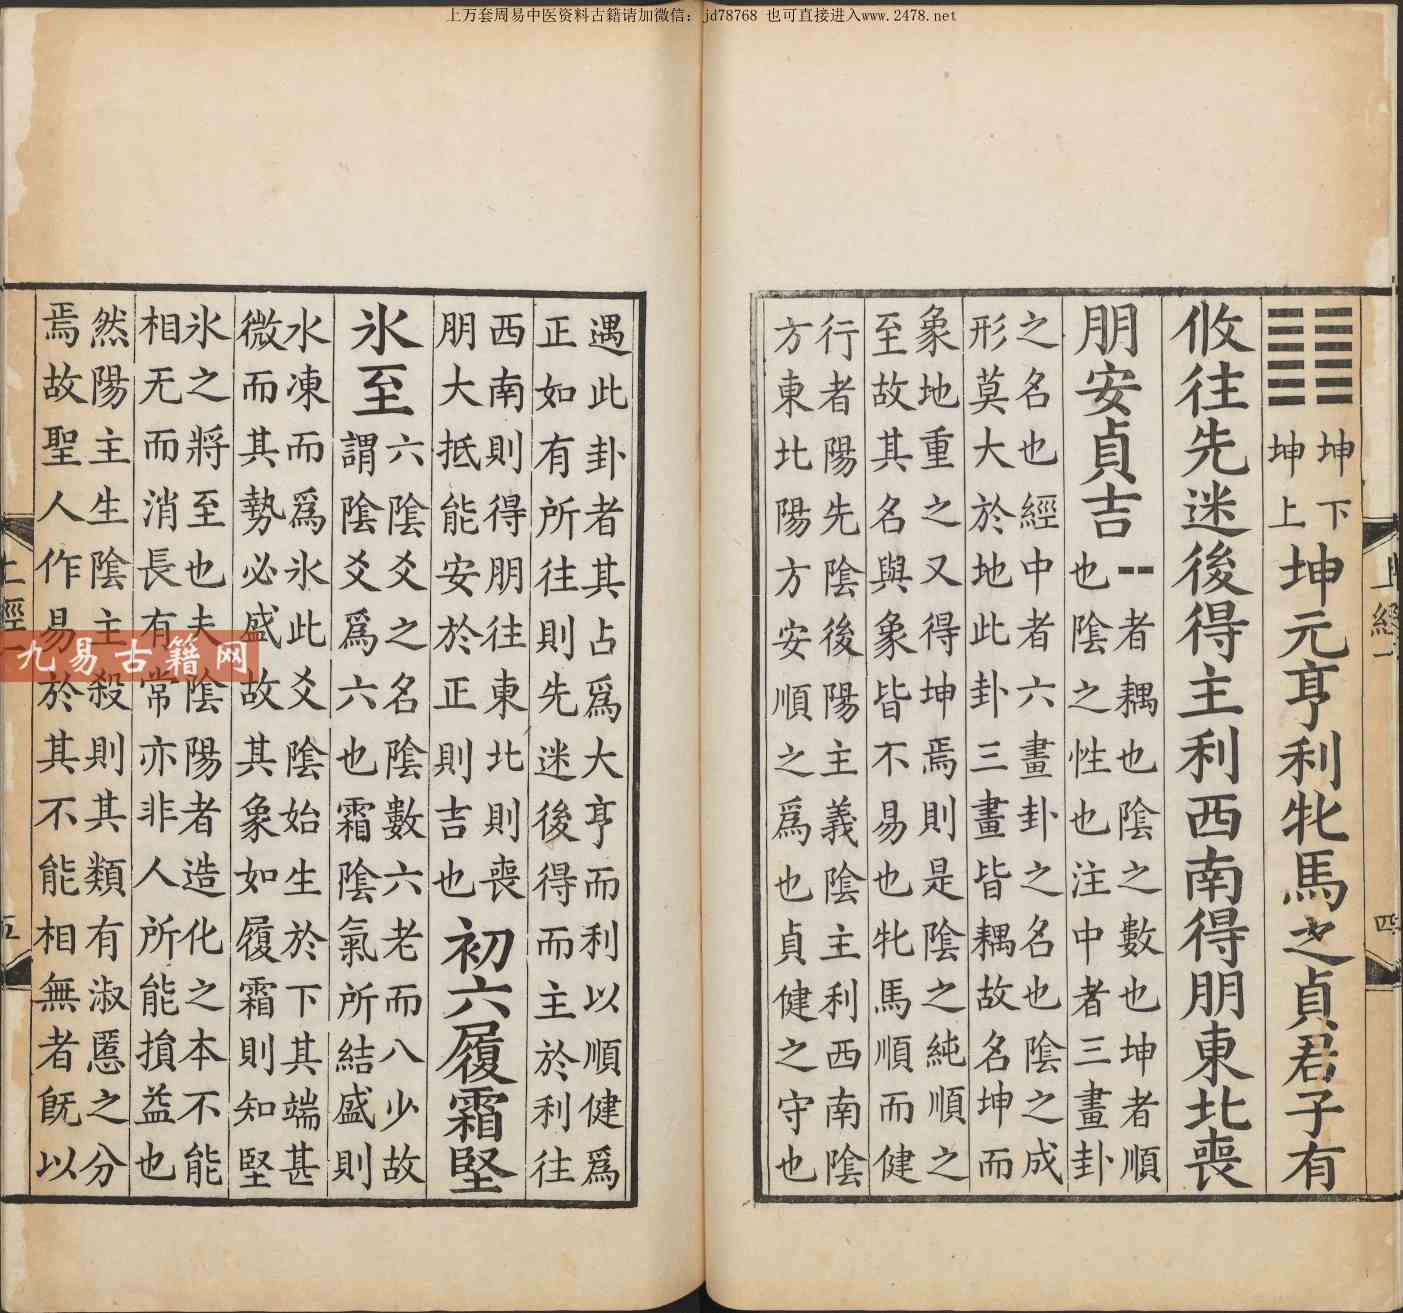 上万套周易中医资料古籍请加微信：jd78768 也可直接进入www.2478.net
坤下
坤上
坤元亨利牝馬之貞君子有
攸往先迷後得主利西南得朋東北喪
朋安貞吉
⚋者耦也陰之數也坤者順
也陰之性也注中者三畫卦
之名也經中者六畫卦之名也陰之成
形莫大於地此卦三畫皆耦故名坤而
象地重之又得坤焉則是陰之純順之
至故其名與象皆不易也牝馬順而健
行者陽先陰後陽主義陰主利西南陰
方東北陽方安順之為也貞健之守也
上經一
四
遇此卦者其占爲大亨而利以順健爲
正如有所往則先迷後得而主於利往
西南則得朋往東北則喪
朋大抵能安於正則吉也
初六履霜堅
氷至
六陰爻之名陰數六老而八少故
謂陰爻爲六也霜陰氣所結盛則
水凍而爲氷此爻陰始生於下其端甚
微而其勢必盛故其象如履霜則知堅
氷之將至也夫陰陽者造化之本不能
相无而消長有常亦非人所能損益也
然陽主生陰主殺則其類有淑慝之分
焉故聖人作易於其不能相無者旣以
上經一
五
九易古籍网